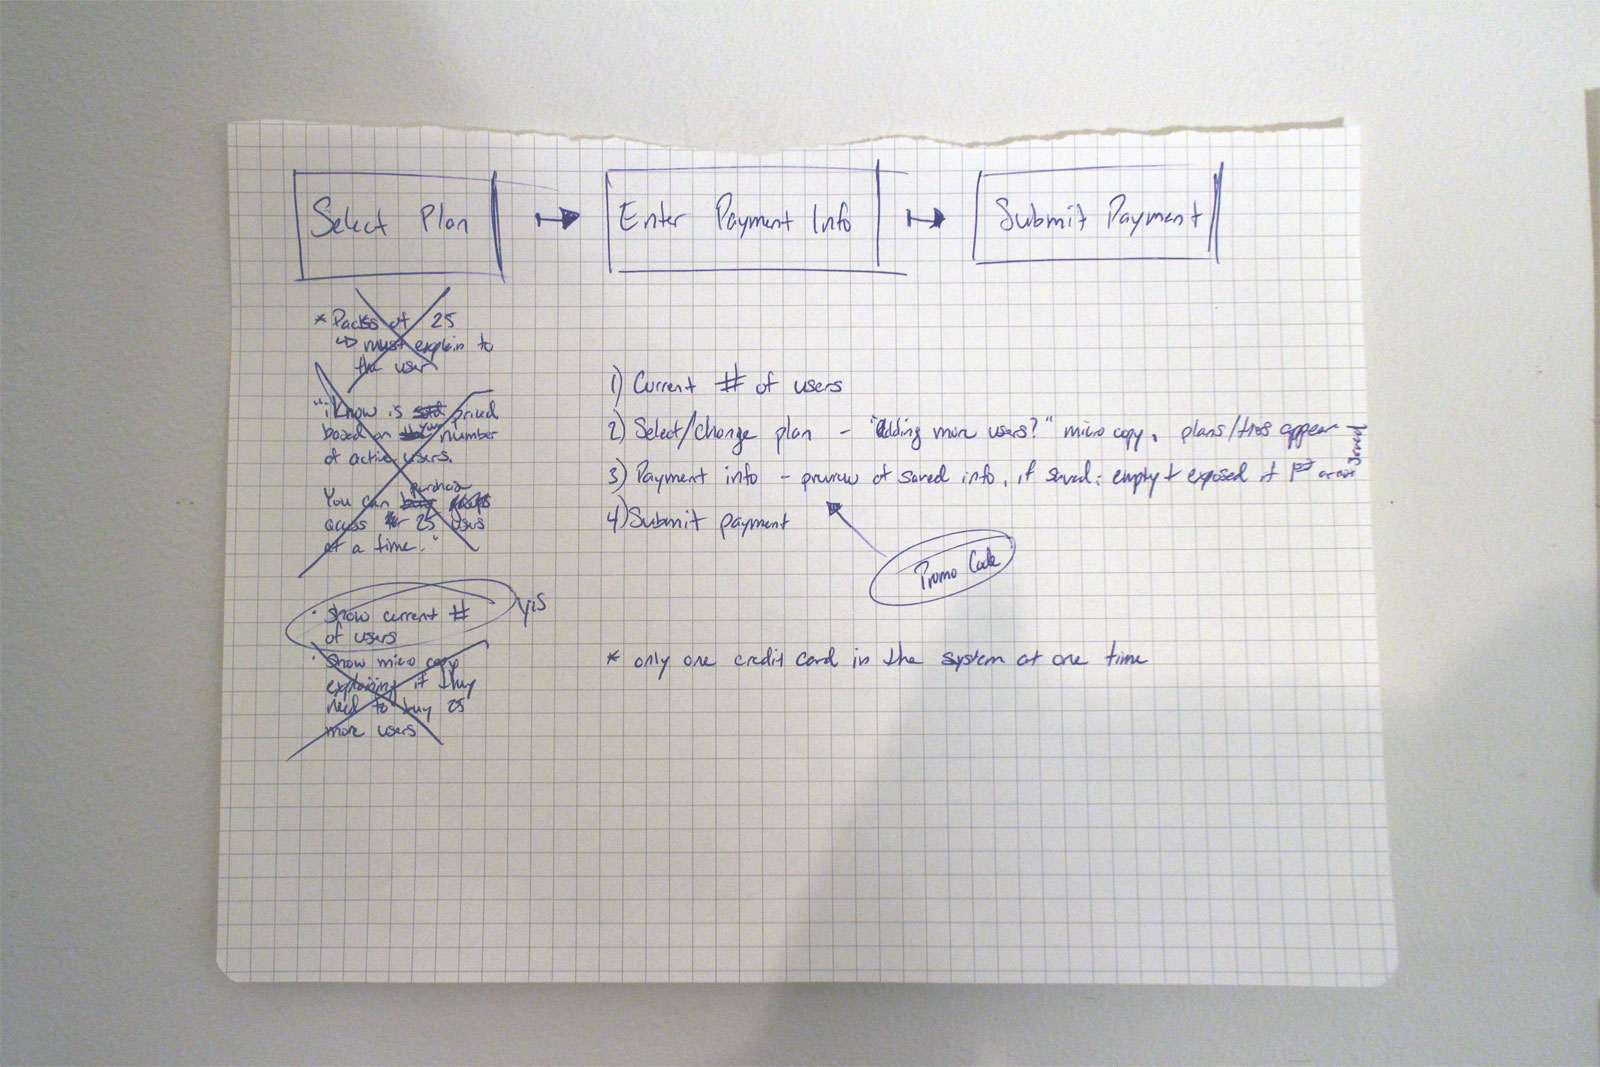 Select Plan
Enter Payment Info
Submit Payment
* Packs of 25
must explain to
the user
"iKnow is sold priced
based on your number
of active users.
You can buy purchase
access for 25 users
at a time."
• Show current #
of users
yis
• Show micro copy
explaining if they
need to buy 25
more users
1) Current # of users
2) Select/change plan - "adding more users?" micro copy, plans/tiers appear
3) Payment info - preview of saved info, if saved; empty + exposed if 1st or not saved
4) Submit payment
Promo Code
* only one credit card in the system at one time